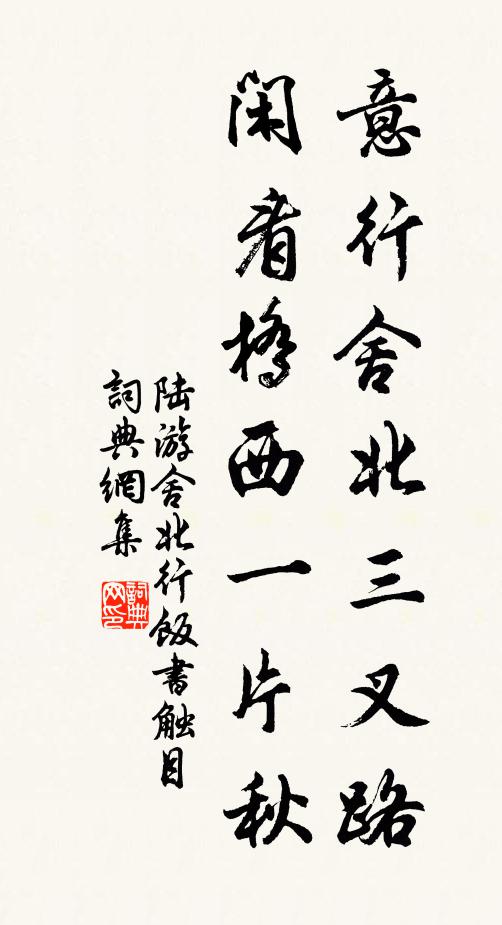 意行舍北三叉路
閑看橋西一片秋
陆游舍北行飯書触目
詞典網集
詞典网印